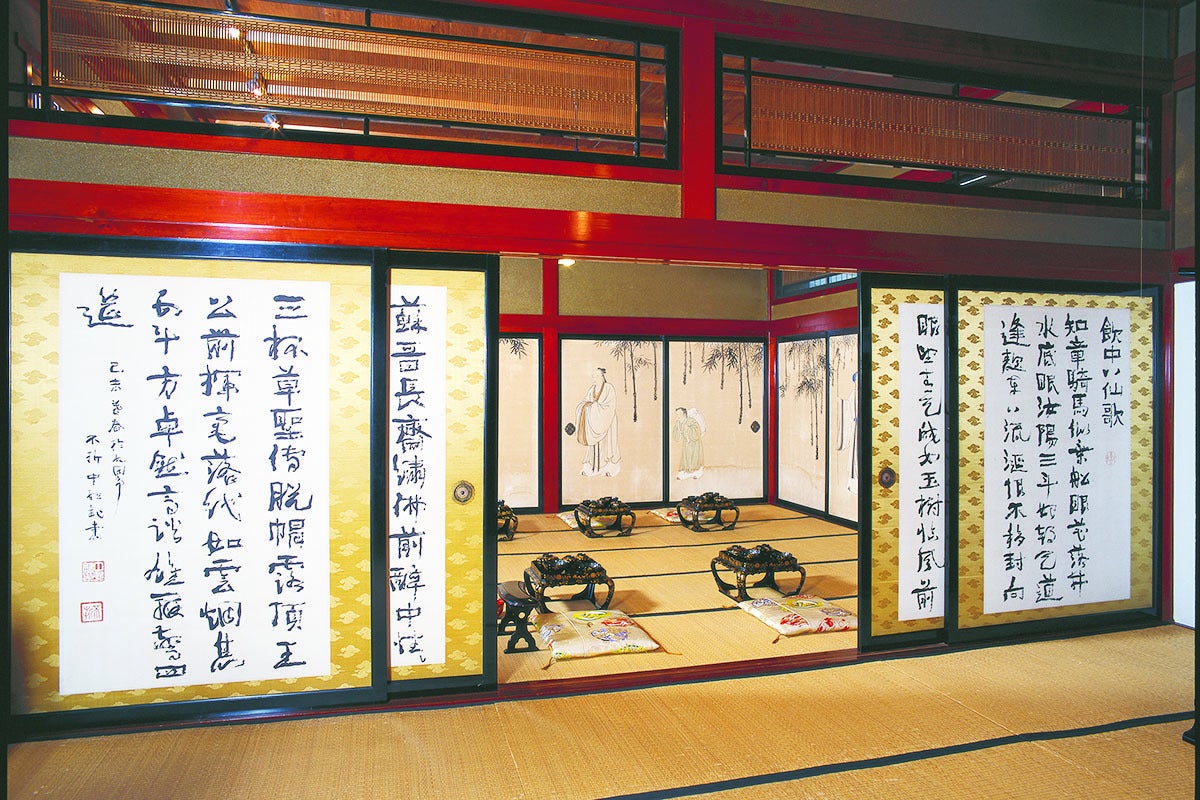 飲中八仙歌
知章騎馬似乗船眼花落井
水底眠汝陽三斗始朝天道
逢麹車口流涎恨不移封向
眼望青天皎如玉樹臨風前
蘇晋長齋繍佛前酔中往
三杯草聖傳脱帽露頂王
公前揮毫落紙如雲烟焦
五斗方卓然高談雄辯驚四
筵
己未